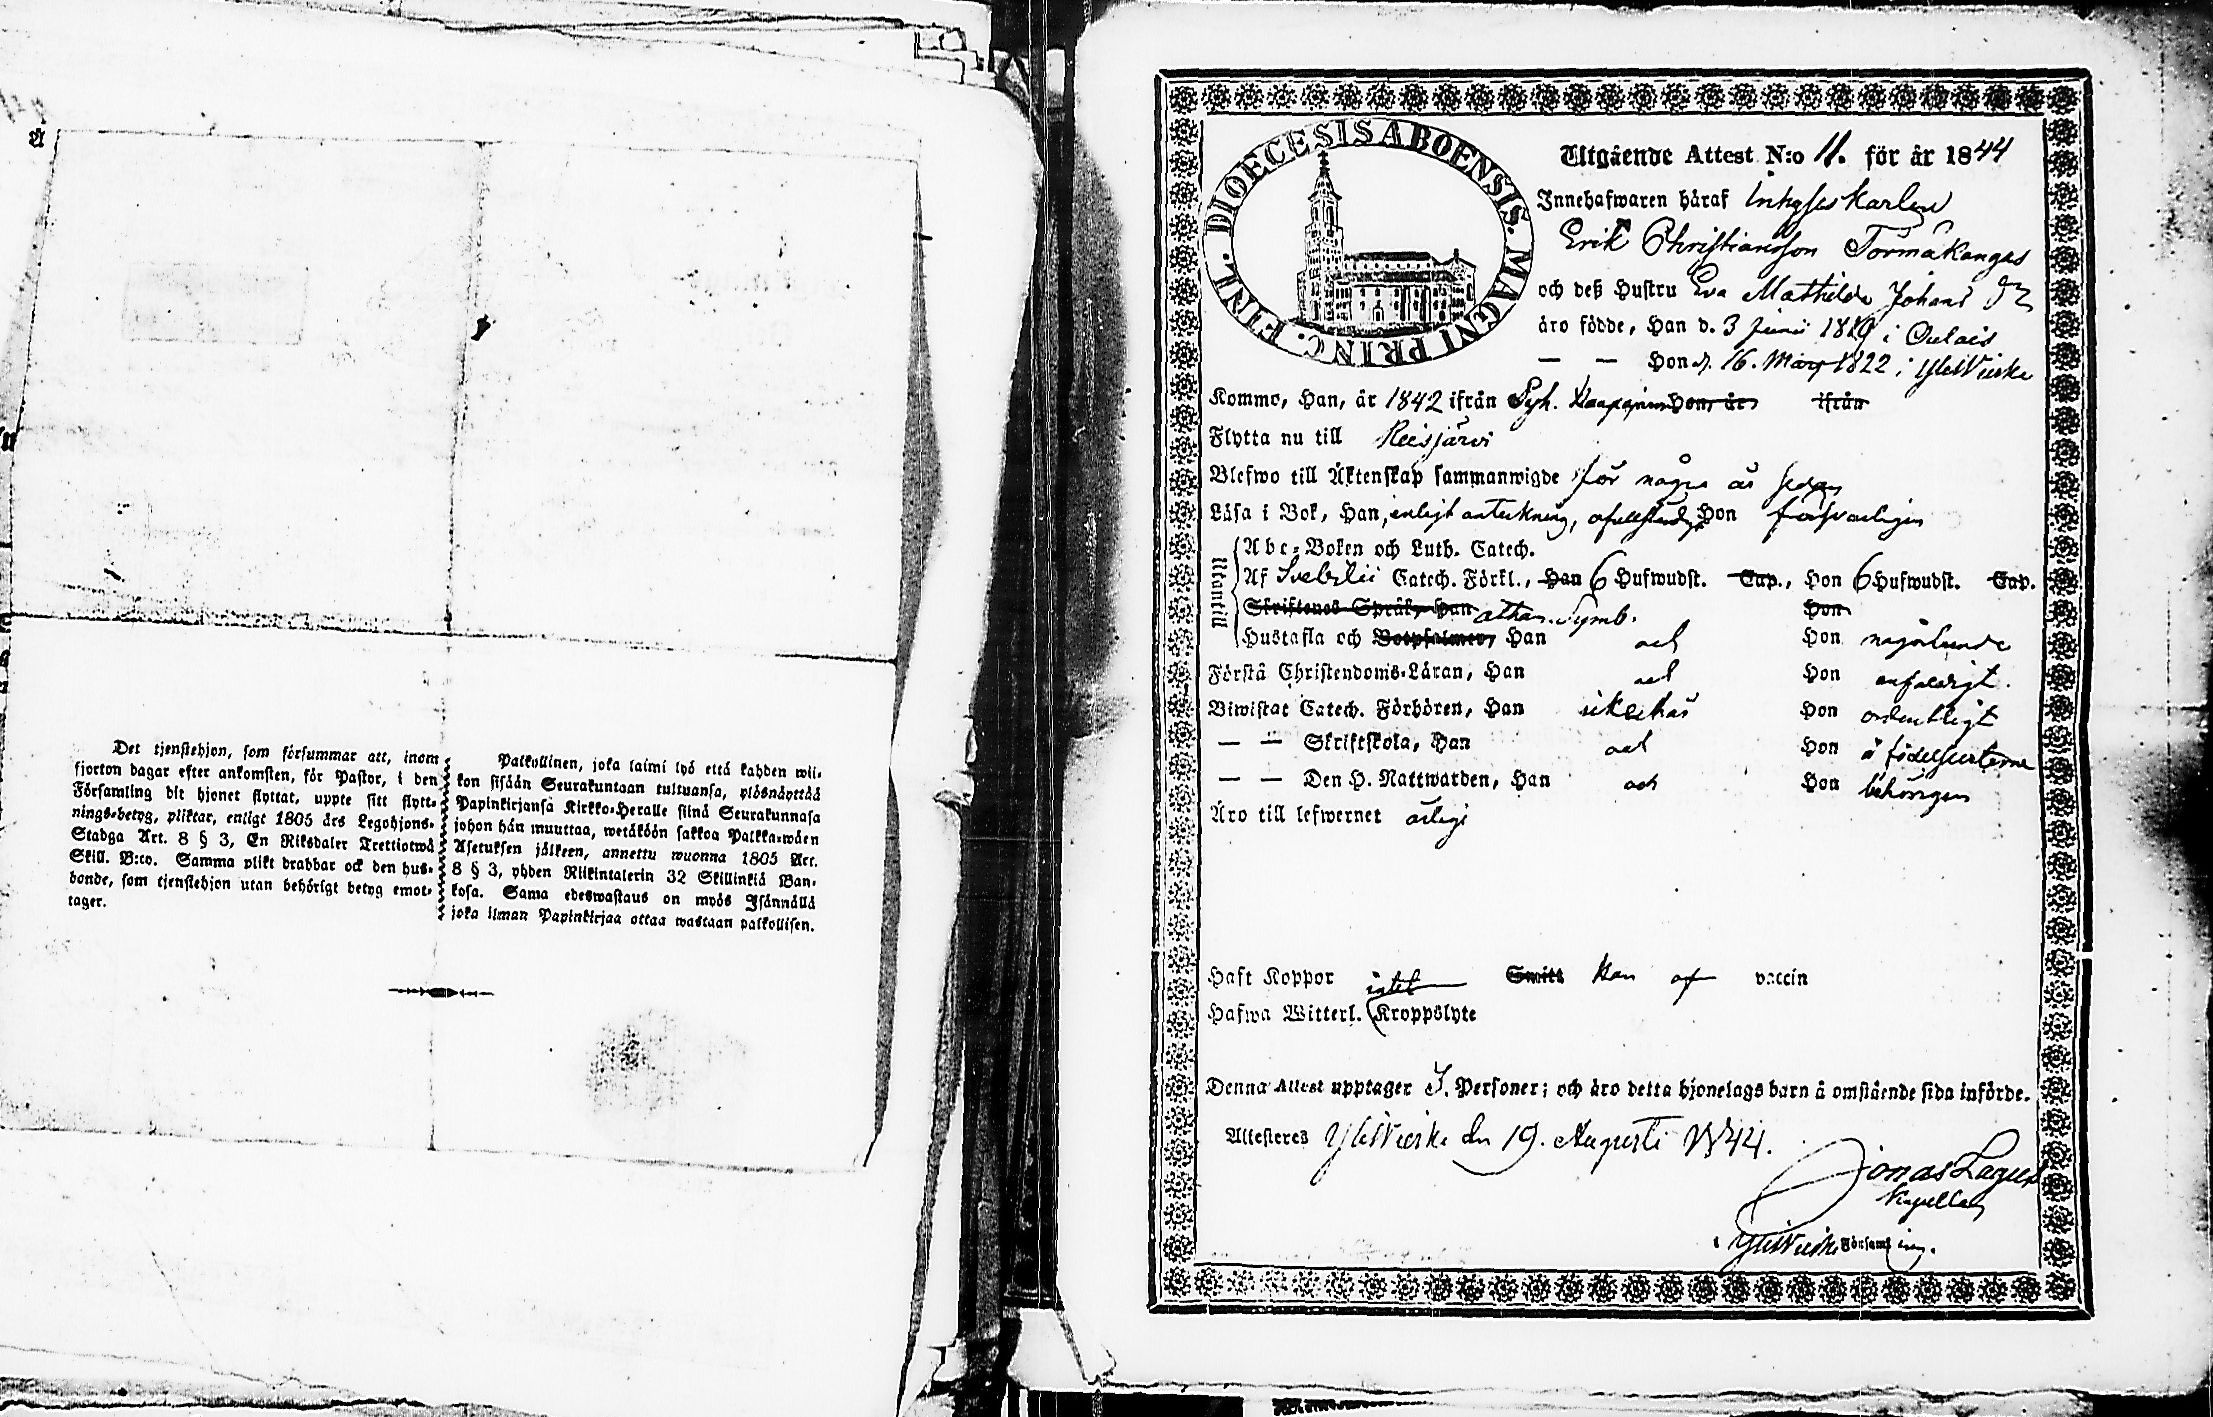 Det tjenstehjon, som försummar att, inom
fjorton dagar efter ankomsten, för Pastor, i den
Församling dit hjonet flyttat, uppte sitt flytt-
nings-betyg, pliktar, enligt 1805 års Legohjons-
Stadga Art. 8 § 3, En Riksdaler Trettiotwå
Skill. B:co. Samma plikt drabbar ock den hus-
bonde, som tjenstehjon utan behörigt betyg emot-
tager.
Palkollinen, joka laimi lyö että kahden wii-
kon sisään Seurakuntaan tultuansa, ylösnäyttää
Papinkirjansa Kirkko-Heralle siinä Seurakunnasa
johon hän muuttaa, wetäköön sakkoa Palkka-wäen
Asetuksen jälkeen, annettu wuonna 1805 Art.
8 § 3, yhden Riikintalerin 32 Skillinkiä Ban-
kosa. Sama edeswastaus on myös Isännällä
joka ilman Papinkirjaa ottaa wastaan palkollisen.
DIOECESIS ABOENSIS. MAGNI PRINC. FINL.
Utgående Attest N:o 11. för år 1844
Innehafwaren häraf Inhyses karlen
Erik Christiansson Törmäkangas
och deß Hustru Eva Mathilda Johans dr
äro födde, Han d. 3 Junii 1819 i Oulais
— — Hon d. 16. Mars 1822 i YliVieska
Kommo, Han, år 1842 ifrån Hon, år ifrån
Flytta nu till Reisjärvi
Blefwo till Äktenskap sammanwigde för några år sedan
Läsa i Bok, Han, enligt anteckning, ofullständigt Hon försvarligen
Utantill
Abc-Boken och Luth. Catech.
Af Svebelii Catech. Förkl., Han 6 Hufwudst. Cap., Hon 6 Hufwudst. Cap.
Skriftenes Språk, Han athan. Symb. Hon
Hustafla och Botpsalmer, Han och Hon någorlunda
Förstå Christendoms-Läran, Han och Hon enfaldigt.
Biwistat Catech. Förhören, Han Hon ordentligt
— — Skriftskola, Han och Hon å födelseorterna
— — Den H. Nattwarden, Han och Hon behörigen
Äro till lefwernet ärlige
Haft Koppor intet Smitt Han af vaccin
Hafwa Witterl. Kroppslyte
Denna Attest upptager Personer; och äro detta hjonelags barn å omstående sida införde.
Attesteres YliVieska den 19. Augusti 1844.
Jonas Lagus
Kapellan
i YliVieska Församling.